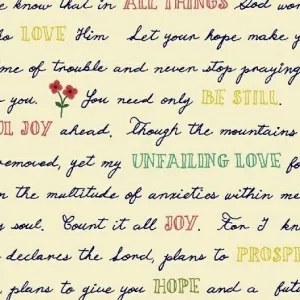 we know that in ALL THINGS God wor
to LOVE Him Let your hope make y
me of trouble and never stop praying
to you. You need only BE STILL.
UL JOY ahead. Though the mountains
removed, yet my UNFAILING LOVE fo
n the multitude of anxieties within me
y soul. Count it all JOY. For I kn
declares the Lord, plans to PROSPE
plans to give you HOPE and a futu